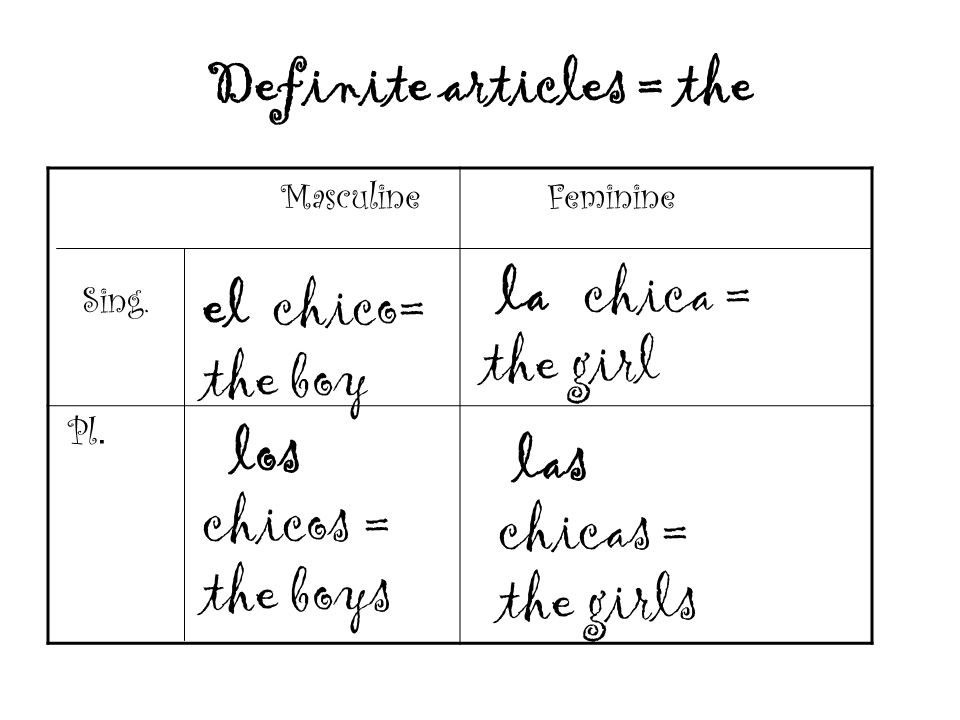 Definite articles = the
Masculine Feminine
Sing.
el chico=
the boy
la chica =
the girl
Pl.
los
chicos =
the boys
las
chicas =
the girls